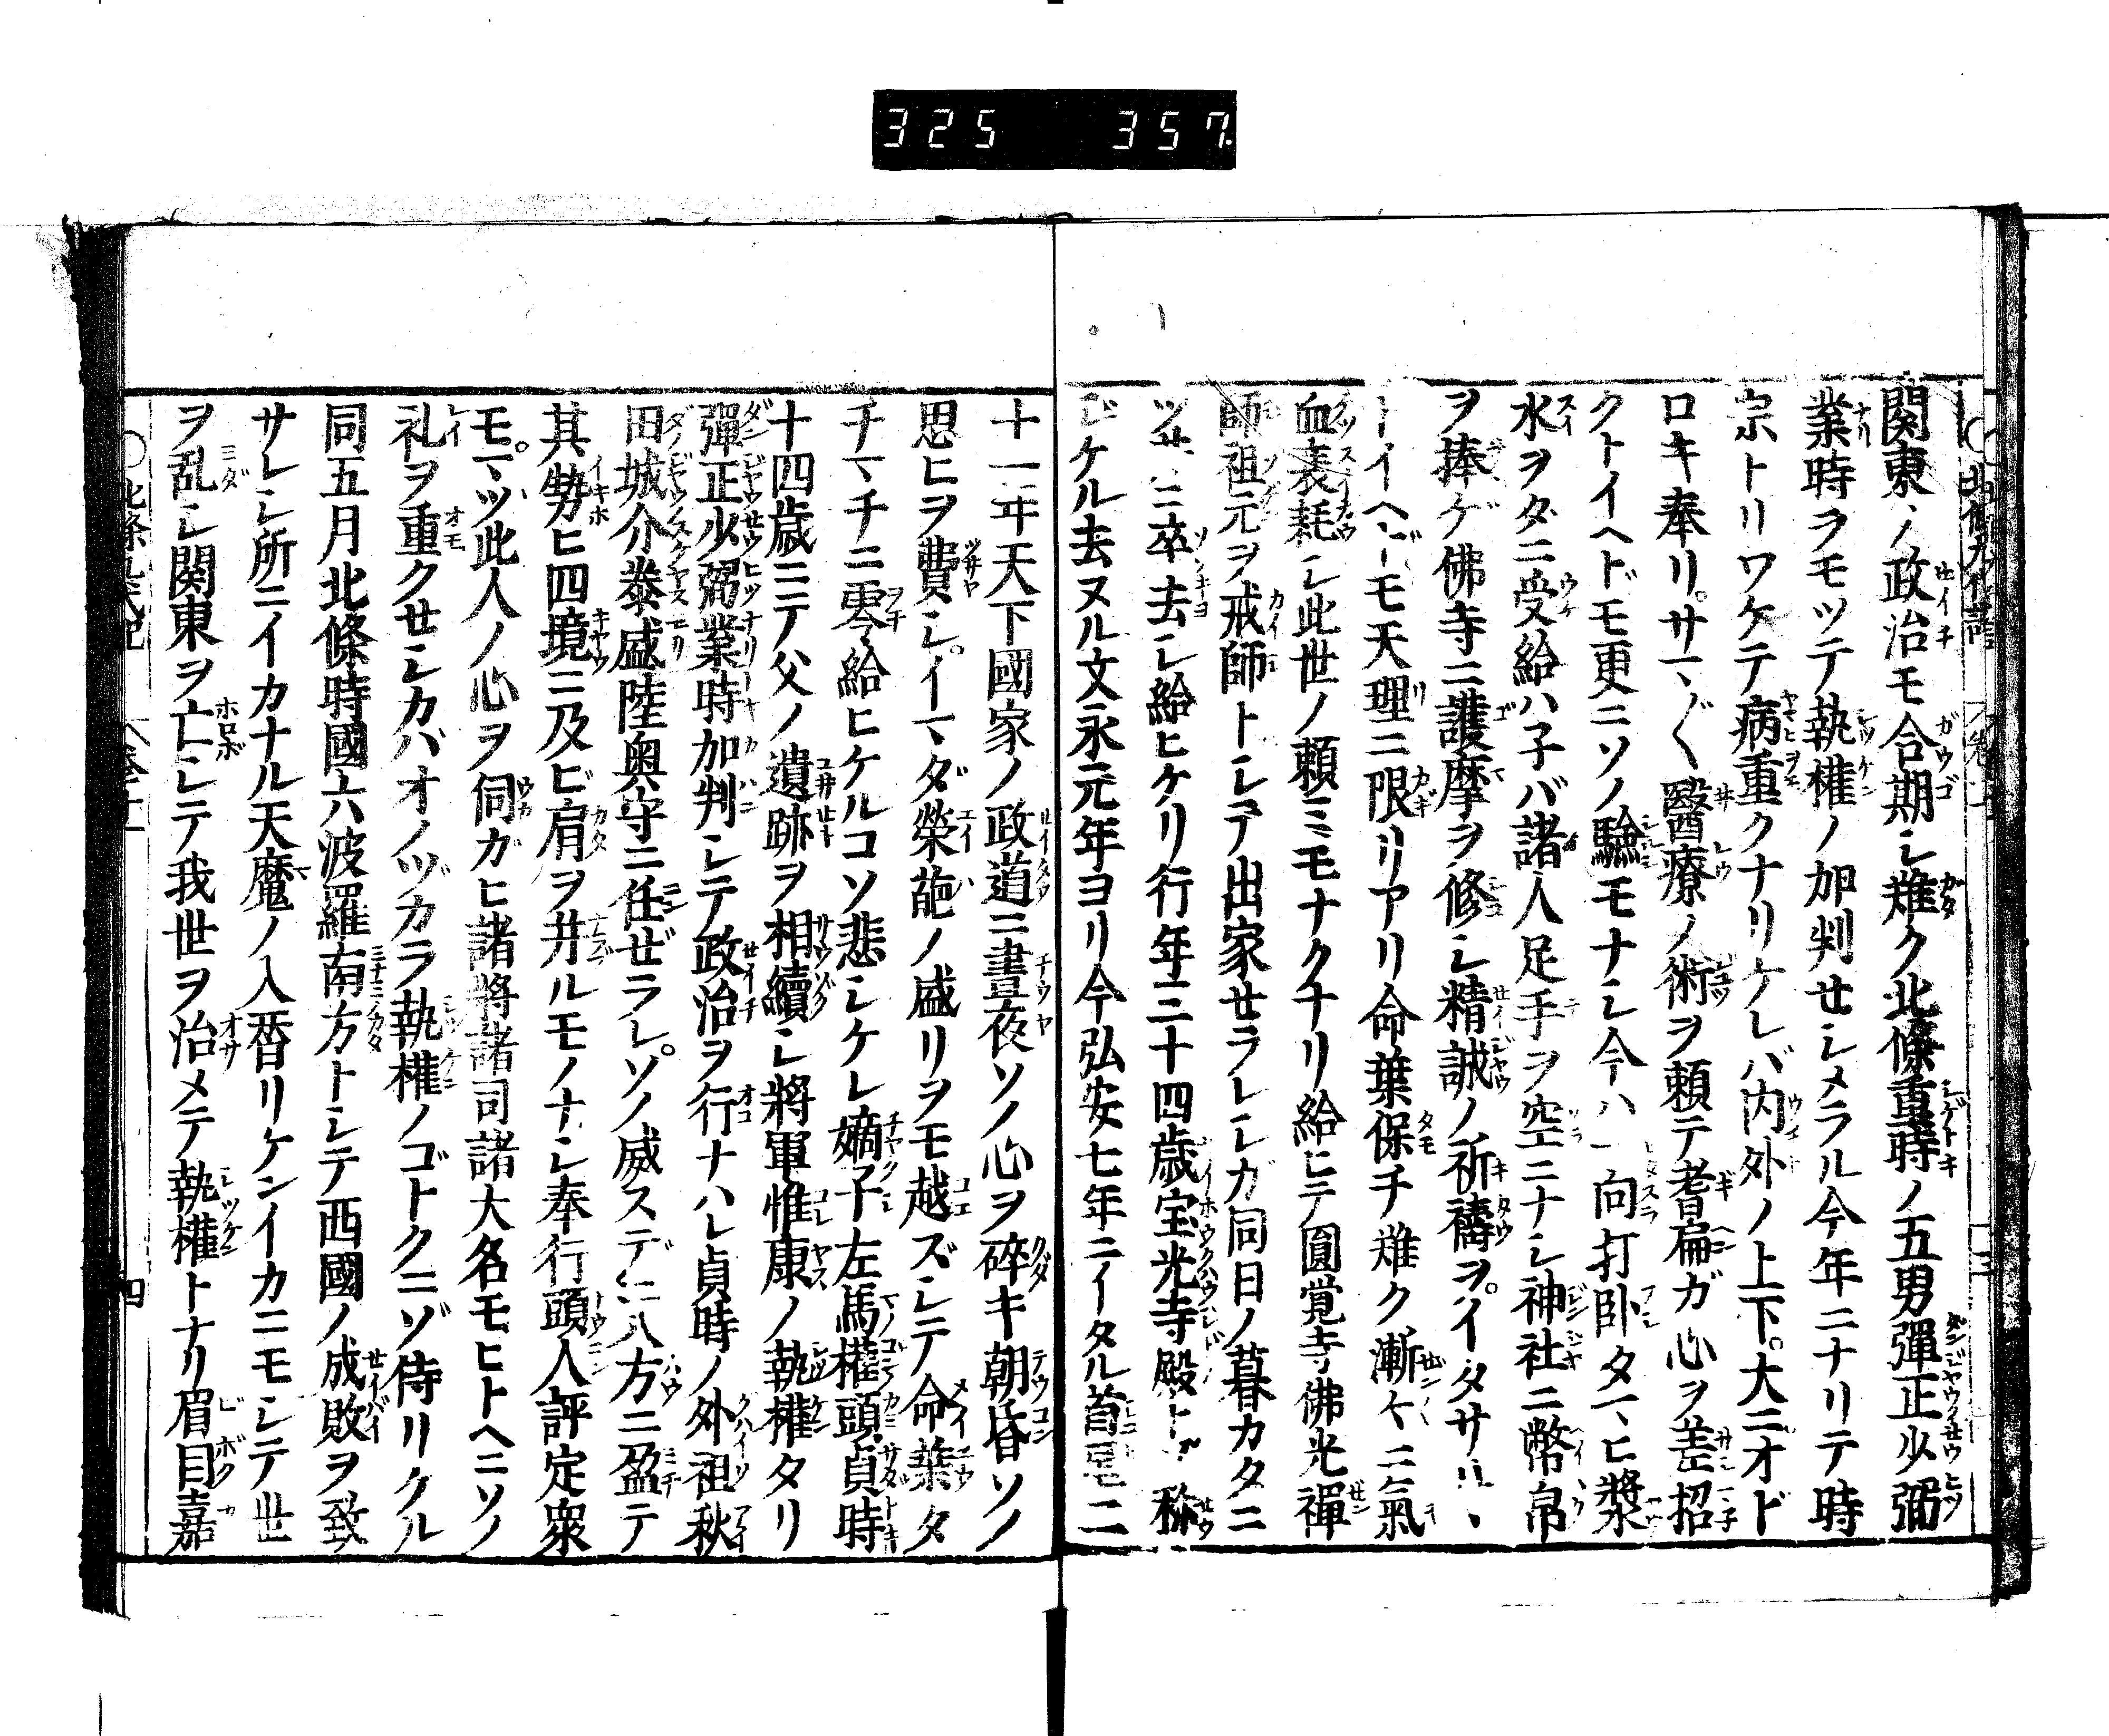 325 357
関東ノ政治モ合期シ難ク北條重時ノ五男彈正少弼
業時ヲモツテ執權ノ加判せシメラル今年ニナリテ時
宗トリワケテ病重クナリケレバ内外ノ上下大ニオド
ロキ奉リ。サマ〲醫療ノ術ヲ頼テ耆扁ガ心ヲ差招
クトイヘドモ更ニソノ驗モナシ今ハ一向打臥タマヒ漿
水ヲダニ受給ハ子バ諸人足手ヲ空ニナシ神社ニ幣帛
ヲ捧ゲ佛寺ニ護摩ヲ修シ精誠ノ祈禱ヲイタサル
トイヘドモ天理ニ限リアリ命葉保チ難ク漸々ニ氣
血衰耗シ此世ノ頼ミモナクナリ給ヒテ圓覚寺佛光禪
師祖元ヲ戒師トシテ出家せラレシガ同日ノ暮カタニ
ツヰニ卒去シ給ヒケリ行年三十四歳宝光寺殿トゾ称
じケル去ヌル文永元年ヨリ今弘安七年ニイタル首尾二
十一年天下國家ノ政道ニ晝夜ソノ心ヲ碎キ朝昏ソノ
思ヒヲ費シ。イマダ榮葩ノ盛リヲモ越ズシテ命葉タ
チマチニ零給ヒケルコソ悲シケレ嫡子左馬權頭貞時
十四歳ニテ父ノ遺跡ヲ相續シ將軍惟康ノ執權タリ
彈正少弼業時加判シテ政治ヲ行ナハレ貞時ノ外祖秋
田城介泰盛陸奥守ニ任ぜラレ。ソノ威スデニ八方ニ盈テ
其勢ヒ四境ニ及ビ肩ヲ并ルモノナシ奉行頭人評定衆
モ。マヅ此人ノ心ヲ伺ガヒ諸將諸司諸大名モヒトヘニソノ
礼ヲ重クせシカバオノヅカラ執權ノゴトクニゾ侍リケル
同五月北條時國六波羅南方トシテ西國ノ成敗ヲ致
サレシ所ニイカナル天魔ノ入替リケンイカニモシテ世
ヲ乱シ関東ヲ亡シテ我世ヲ治メテ執權トナリ眉目嘉
四